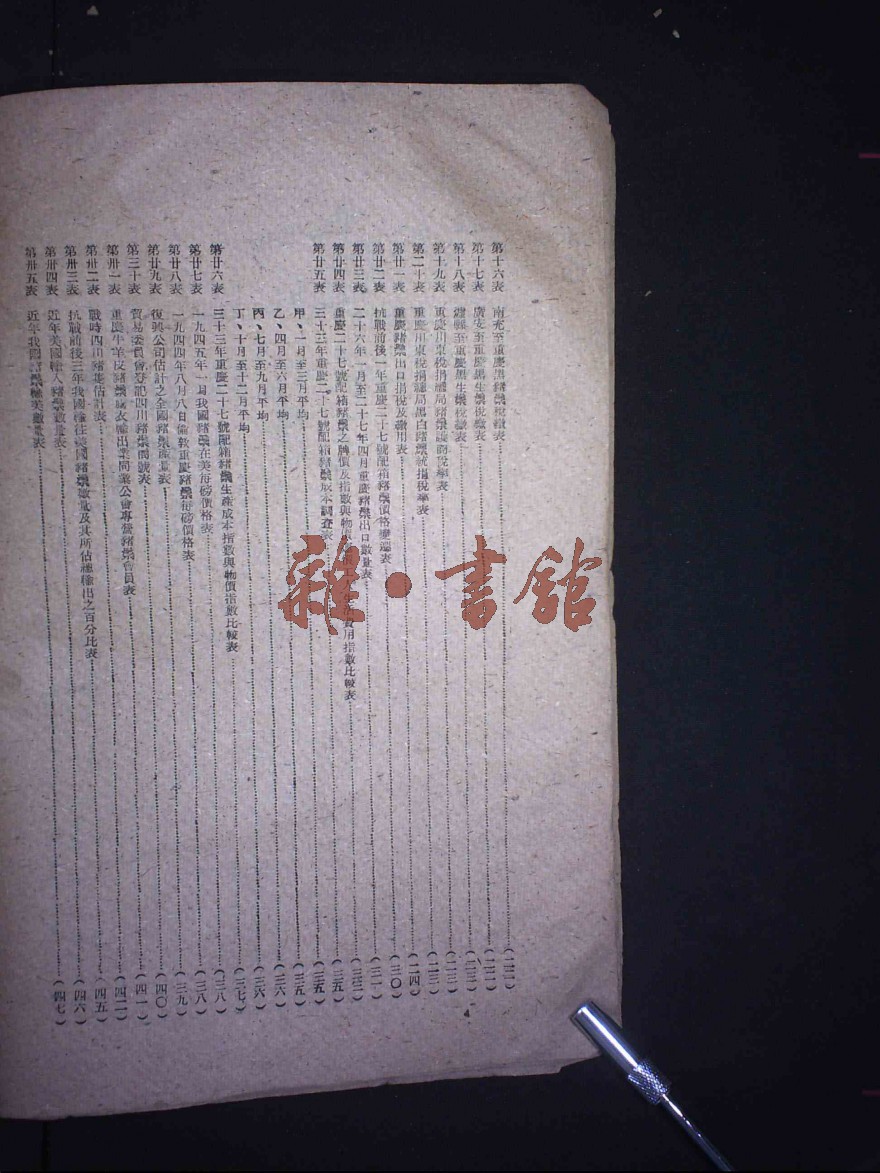 第十六表 南充至重慶黑豬鬃稅繳表……(二二)
第十七表 廣安至重慶黑生鬃稅繳表……(二二)
第十八表 至重慶黑生鬃稅繳表……
第十九表 重慶川東稅捐局豬鬃稅率表……(二三)
第二十表 重慶川東稅捐局黑白豬鬃統捐稅率表……(二四)
第廿一表 重慶豬鬃出口捐稅及繳用表……(三〇)
第廿二表 抗戰前後一年重慶二十七號配箱豬鬃價格變遷表……(三一)
第廿三表 二十六年一月至二十七年四月重慶豬鬃出口數量表……
第廿四表 重慶二十七號配箱豬鬃之牌價及指數與物價 費用指數比較表……(三五)
第廿五表 三十三年重慶二十七號配箱豬鬃成本調查表……(三五)
甲、一月至三月平均……(三五)
乙、四月至六月平均……(三六)
丙、七月至九月平均……(三六)
丁、十月至十二月平均……(三七)
第廿六表 三十三年重慶二十七號配箱豬鬃生產成本指數與物價指數比較表……(三八)
第廿七表 一九四五年一月我國豬鬃在美每磅價格表……(三八)
第廿八表 一九四四年八月八日倫敦重慶豬鬃每磅價格表……(三九)
第廿九表 復興公司估計之全國豬鬃產量表……(四〇)
第三十表 貿易委員會登記四川豬鬃商號表……(四一)
第卅一表 重慶牛羊皮豬鬃腸衣輸出業同業公會專營豬鬃會員表……(四二)
第卅二表 戰時四川豬隻估計表……(四五)
第卅三表 抗戰前後三年我國輸往美國豬鬃數量及其所佔總輸出之百分比表……(四六)
第卅四表 近年美國輸入豬鬃數量表……
第卅五表 近年我國豬鬃輸美數量表……(四七)
4
雜·書館